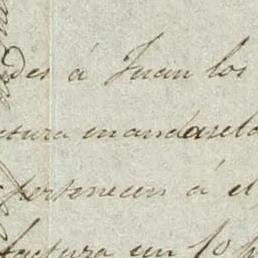 des á Juan los
ctura mandarselo
pertenecen á el
factura un 10 p